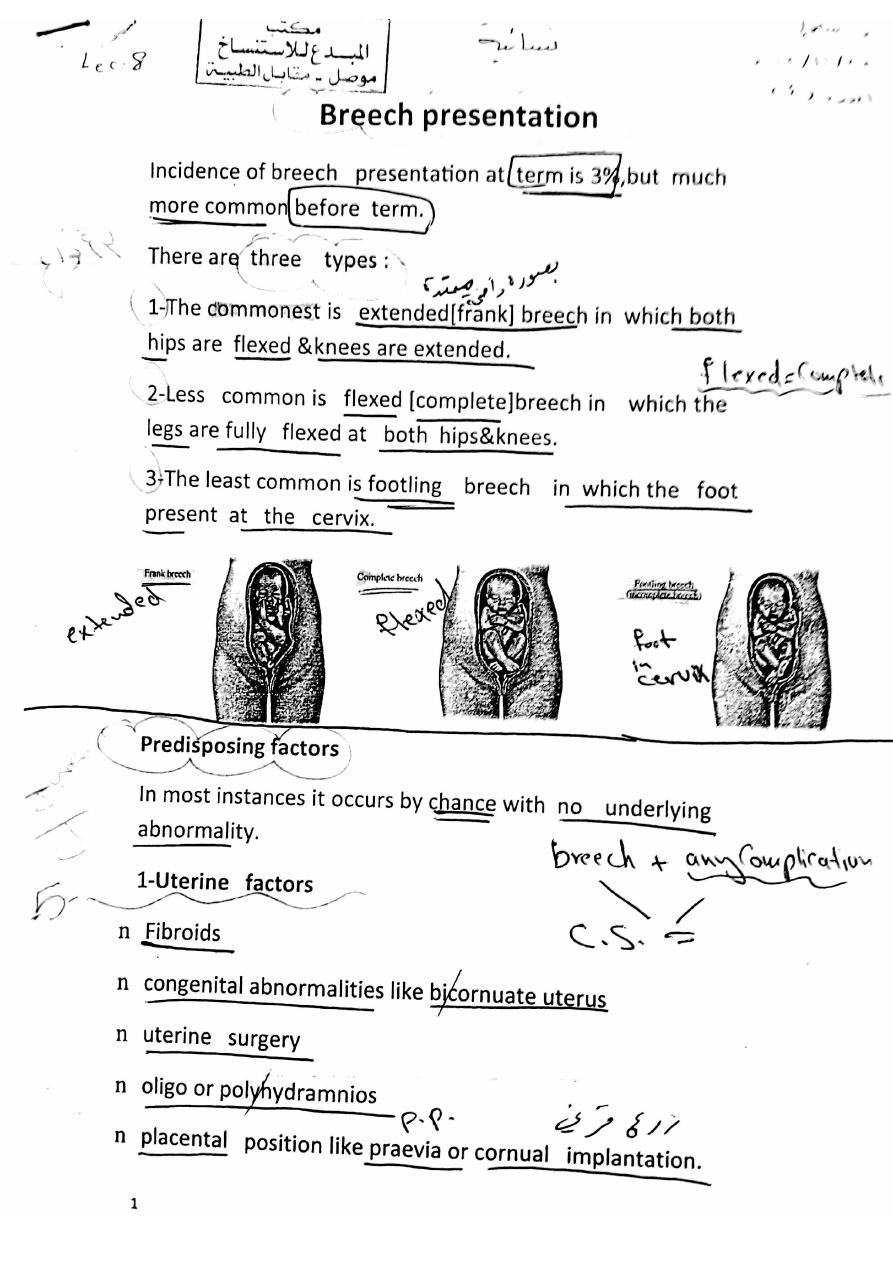 Lec.8
مكتب
المبدع للاستنساخ
موصل - مقابل الطبية
نسائية
Breech presentation
Incidence of breech presentation at term is 3%,but much
more common before term.
There are three types :
بصورة
1-The commonest is extended[frank] breech in which both
hips are flexed &knees are extended.
flexed=Complete
2-Less common is flexed [complete]breech in which the
legs are fully flexed at both hips&knees.
3-The least common is footling breech in which the foot
present at the cervix.
Frank breech
extended
Complete breech
flexed
Footling breech
(incomplete breech)
foot
in
cervix
Predisposing factors
In most instances it occurs by chance with no underlying
abnormality.
breech + any Complication
C.S. =
1-Uterine factors
n Fibroids
n congenital abnormalities like bicornuate uterus
n uterine surgery
n oligo or polyhydramnios
P.P.
n placental position like praevia or cornual implantation.
1